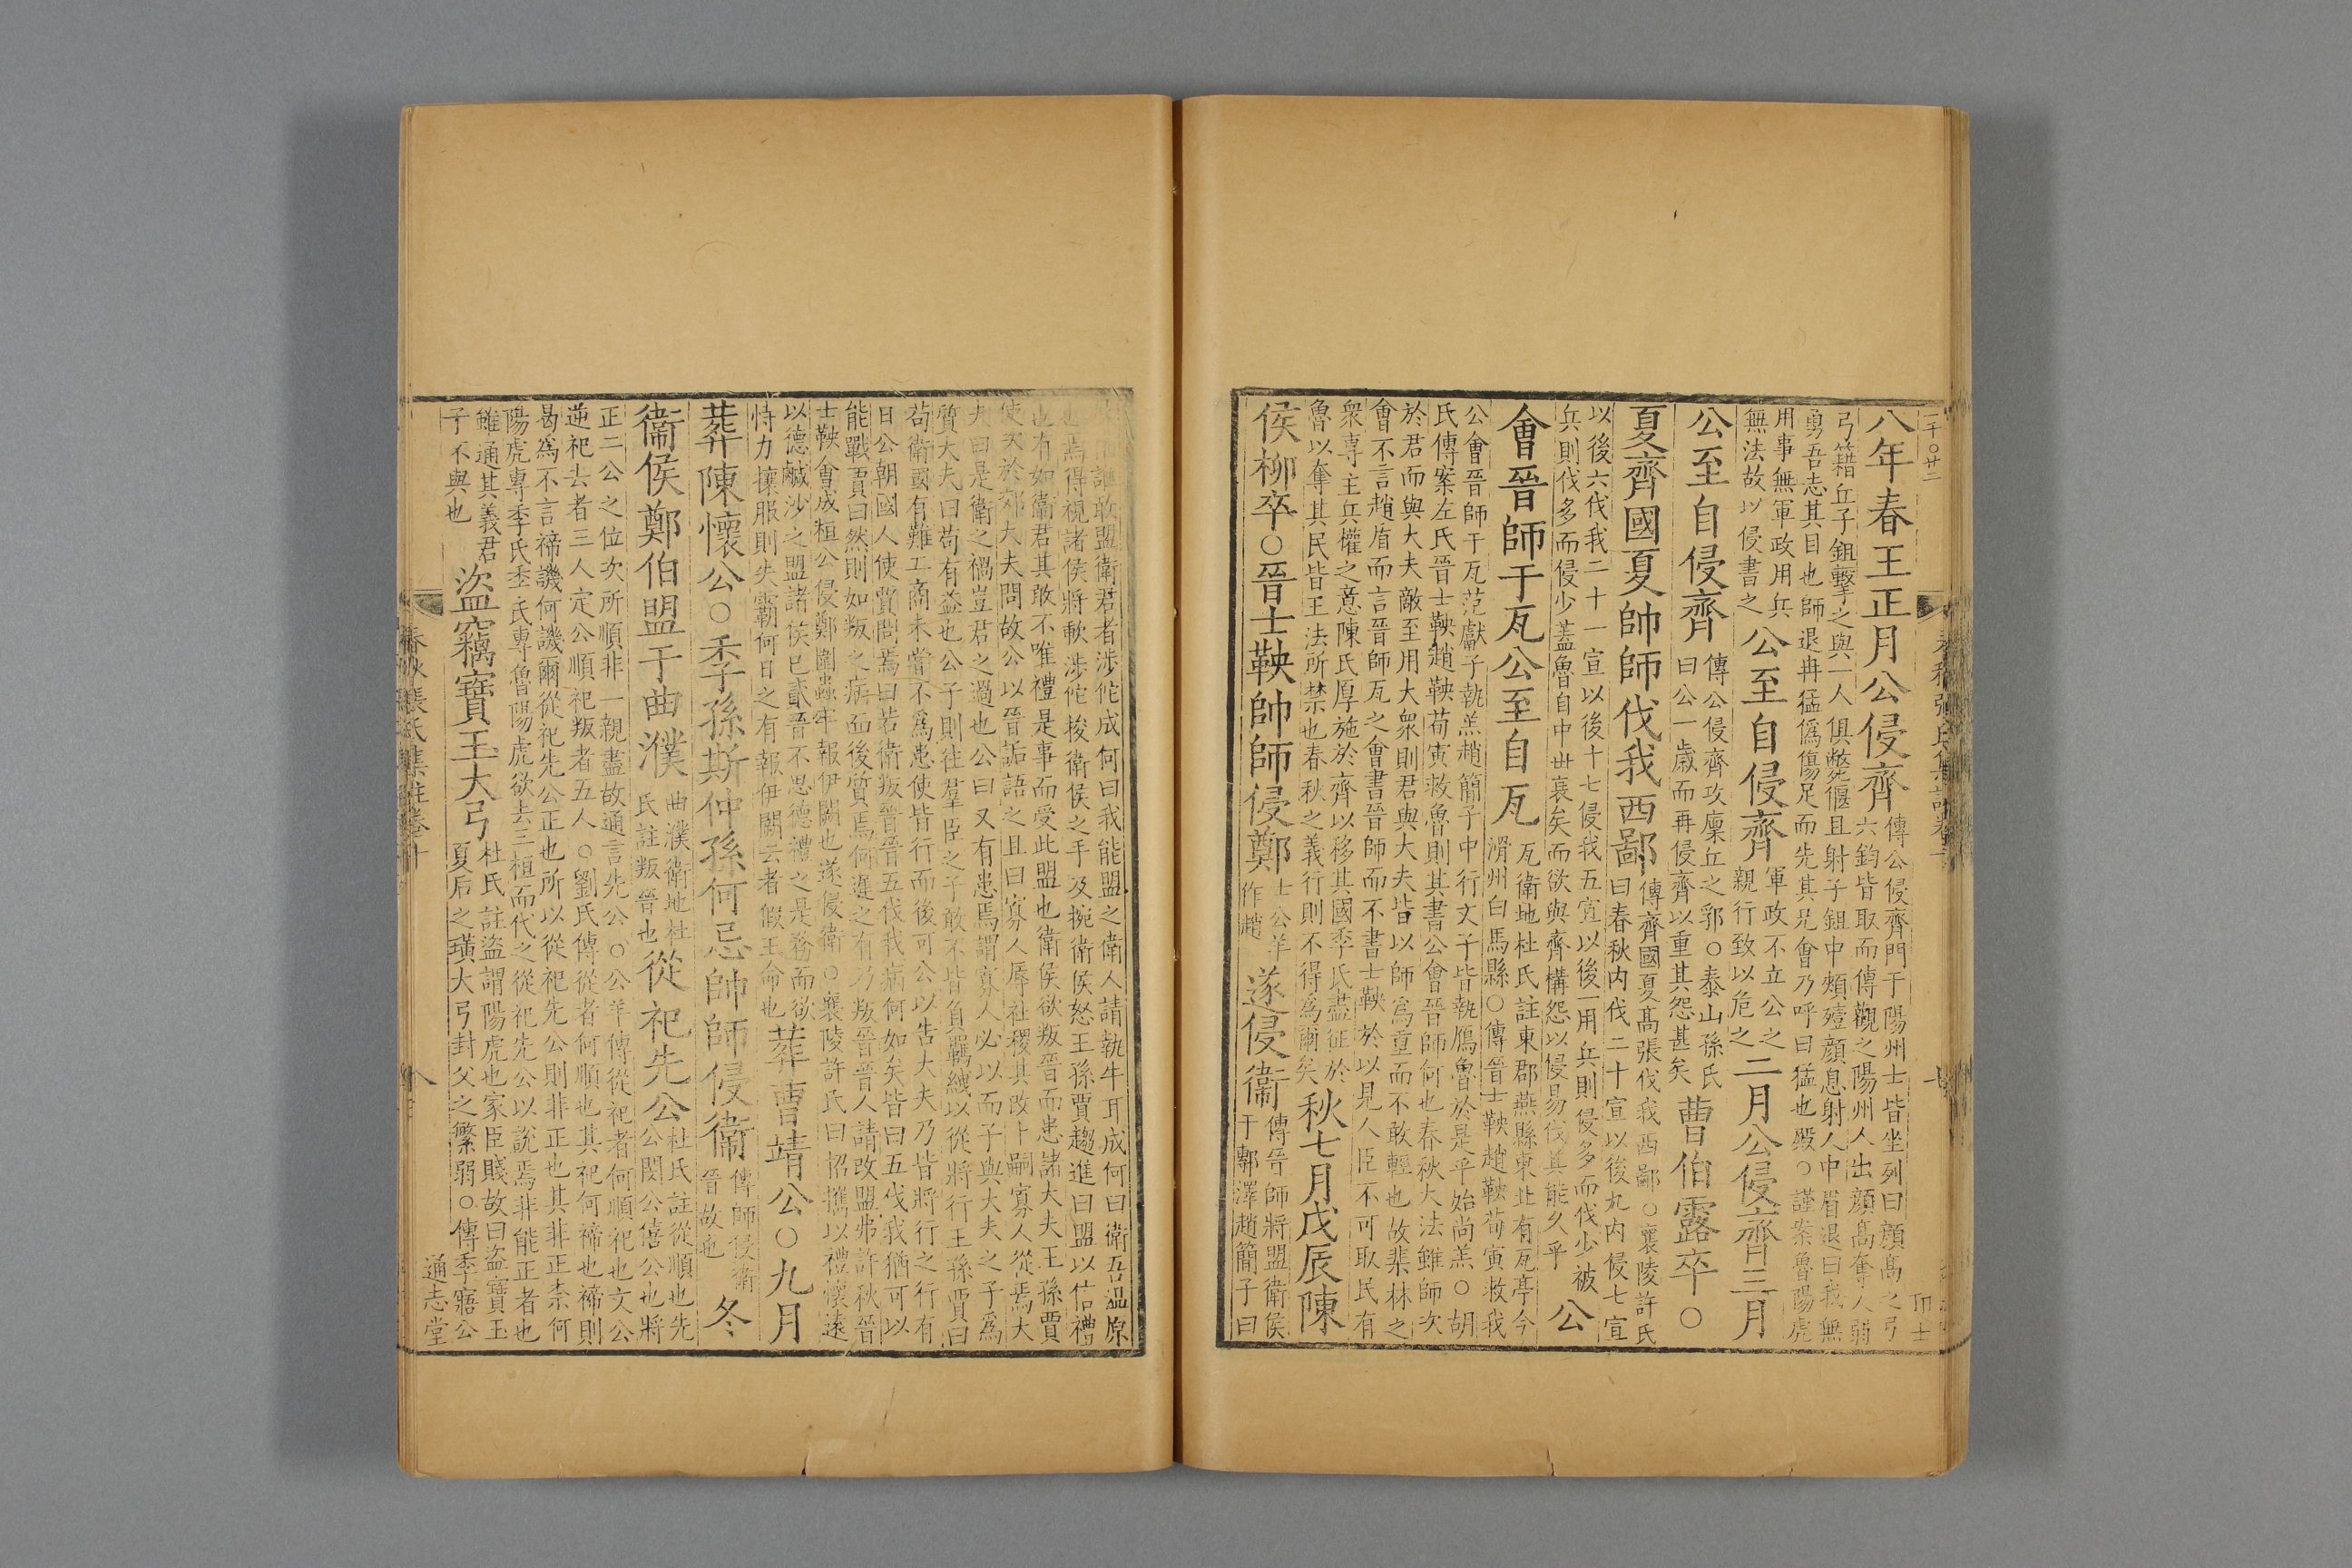 二千○廿二
八年春王正月公侵齊傳公侵齊門于陽州士皆坐列曰顔高之弓
六鈞皆取而傳觀之陽州人出顔高奪人弱
弓籍丘子鉏擊之與一人俱斃偃且射子鉏中頰殪顔息射人中眉退曰我無
勇吾志其目也師退冉猛僞傷足而先其兄會乃呼曰猛也殿○謹案魯陽虎
用事無軍政用兵
無法故以侵書之公至自侵齊軍政不立公之
親行致以危之二月公侵齊三月
公至自侵齊傳公侵齊攻廩丘之郛○泰山孫氏
曰公一歲而再侵齊以重其怨甚矣曹伯露卒○
夏齊國夏帥師伐我西鄙傳齊國夏高張伐我西鄙○襄陵許氏
曰春秋内伐二十宣以後九内侵七宣
以後六伐我二十一宣以後十七侵我五宣以後一用兵則侵多而伐少被
兵則伐多而侵少蓋魯自中世衰矣而欲與齊構怨以侵易伐其能久乎公
會晉師于瓦公至自瓦瓦衛地杜氏註東郡燕縣東北有瓦亭今
滑州白馬縣○傳晉士鞅趙鞅荀寅救我
公會晉師于瓦范獻子執羔趙簡子中行文子皆執鴈魯於是乎始尚羔○胡
氏傳案左氏晉士鞅趙鞅荀寅救魯則其書公會晉師何也春秋大法雖師次
於君而與大夫敵至用大衆則君與大夫皆以師爲重而不敢輕也故棐林之
會不言趙盾而言晉師瓦之會書晉師而不書士鞅於以見人臣不可取民有
衆專主兵權之意陳氏厚施於齊以移其國季氏盡征於
魯以奪其民皆王法所禁也春秋之義行則不得爲爾矣秋七月戊辰陳
侯柳卒○晉士鞅帥師侵鄭士公羊
作趙遂侵衛傳晉師將盟衛侯
于鄟澤趙簡子曰
誰敢盟衛君者涉佗成何曰我能盟之衛人請執牛耳成何曰衛吾溫原
也焉得視諸侯將歃涉佗捘衛侯之手及捥衛侯怒王孫賈趨進曰盟以信禮
也有如衛君其敢不唯禮是事而受此盟也衛侯欲叛晉而患諸大夫王孫賈
使次於郊大夫問故公以晉詬語之且曰寡人辱社稷其改卜嗣寡人從焉大
夫曰是衛之禍豈君之過也公曰又有患焉謂寡人必以而子與大夫之子爲
質大夫曰苟有益也公子則往羣臣之子敢不皆負羈絏以從將行王孫賈曰
苟衛國有難工商未嘗不爲患使皆行而後可公以告大夫乃皆將行之行有
日公朝國人使賈問焉曰若衛叛晉晉五伐我病何如矣皆曰五伐我猶可以
能戰賈曰然則如叛之病而後質焉何遲之有乃叛晉晉人請改盟弗許秋晉
士鞅會成桓公侵鄭圍蟲牢報伊闕也遂侵衛○襄陵許氏曰招攜以禮懷遠
以德鹹沙之盟諸侯已貳晉不思德禮之是務而欲
恃力攘服則失霸何日之有報伊闕云者假王命也葬曹靖公○九月
葬陳懷公○季孫斯仲孫何忌帥師侵衛傳師侵衛
晉故也冬
衛侯鄭伯盟于曲濮曲濮衛地杜
氏註叛晉也從祀先公杜氏註從順也先
公閔公僖公也將
正二公之位次所順非一親盡故通言先公○公羊傳從祀者何順祀也文公
逆祀去者三人定公順祀叛者五人○劉氏傳從者何順也其祀何禘也禘則
曷爲不言禘譏何譏爾從祀先公正也所以從祀先公則非正也其非正柰何
陽虎專季氏季氏專魯陽虎欲去三桓而代之從祀先公以說焉非能正者也
雖通其義君
子不與也盜竊寶玉大弓杜氏註盜謂陽虎也家臣賤故曰盜寶玉
夏后之璜大弓封父之繁弱○傳季寤公
春秋張氏集註卷十
通志堂